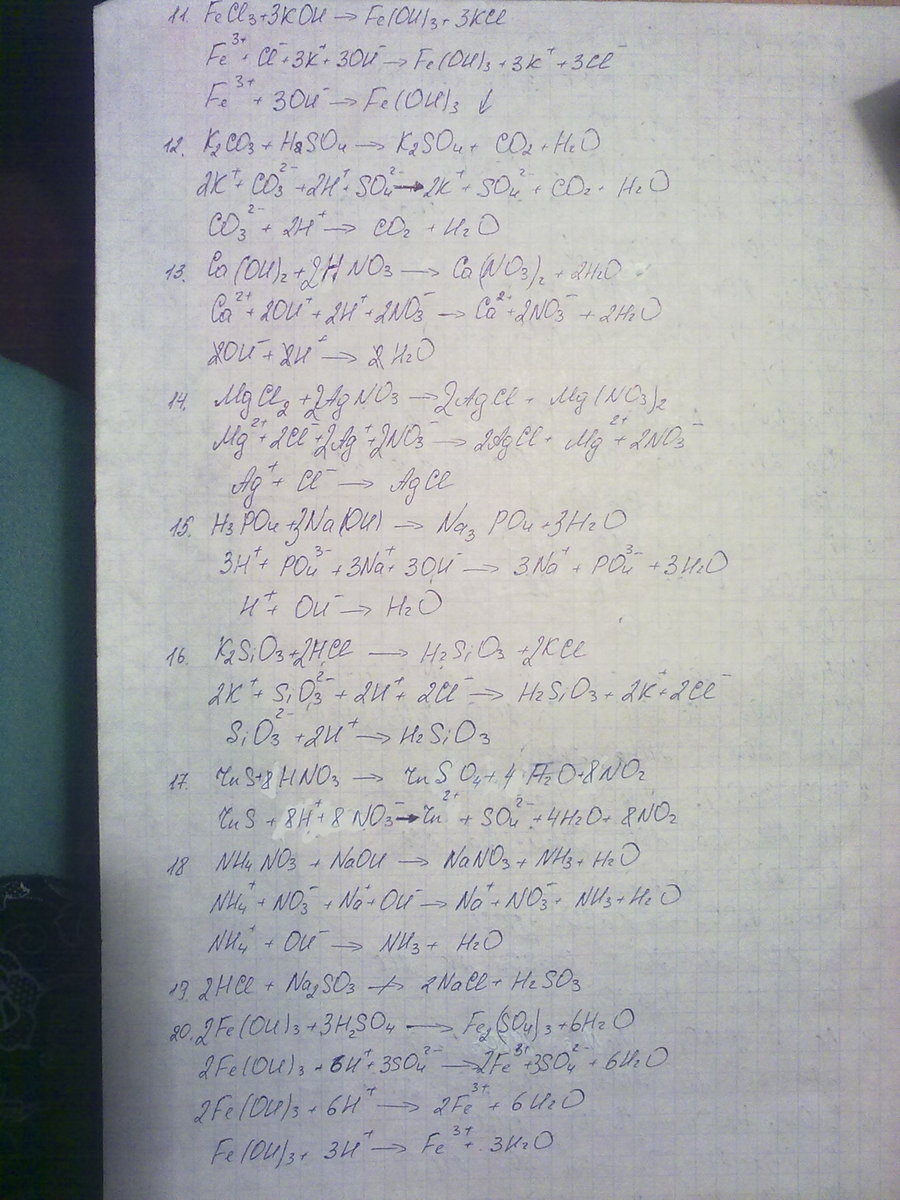 11. FeCl₃+3KOH → Fe(OH)₃+3KCl
Fe³⁺+Cl⁻+3K⁺+3OH⁻→Fe(OH)₃+3K⁺+3Cl⁻
Fe³⁺+3OH⁻→Fe(OH)₃↓
12. K₂CO₃+H₂SO₄→K₂SO₄+CO₂+H₂O
2K⁺+CO₃²⁻+2H⁺+SO₄²⁻→2K⁺+SO₄²⁻+CO₂+H₂O
CO₃²⁻+2H⁺→CO₂+H₂O
13. Ca(OH)₂+2HNO₃→Ca(NO₃)₂+2H₂O
Ca²⁺+2OH⁺+2H⁺+2NO₃⁻→Ca²⁺+2NO₃⁻+2H₂O
2OH⁻+2H⁺→2H₂O
14. MgCl₂+2AgNO₃→2AgCl+Mg(NO₃)₂
Mg²⁺+2Cl⁻+2Ag⁺+2NO₃⁻→2AgCl+Mg²⁺+2NO₃⁻
Ag⁺+Cl⁻→AgCl
15. H₃PO₄+3Na(OH)→Na₃PO₄+3H₂O
3H⁺+PO₄³⁻+3Na⁺+3OH⁻→3Na⁺+PO₄³⁻+3H₂O
H⁺+OH⁻→H₂O
16. K₂SiO₃+2HCl→H₂SiO₃+2KCl
2K⁺+SiO₃²⁻+2H⁺+2Cl⁻→H₂SiO₃+2K⁺+2Cl⁻
SiO₃²⁻+2H⁺→H₂SiO₃
17. ZnS+8HNO₃→ZnSO₄+4H₂O+8NO₂
ZnS+8H⁺+8NO₃⁻→Zn²⁺+SO₄²⁻+4H₂O+8NO₂
18 NH₄NO₃+NaOH→NaNO₃+NH₃+H₂O
NH₄⁺+NO₃⁻+Na⁺+OH⁻→Na⁺+NO₃⁻+NH₃+H₂O
NH₄⁺+OH⁻→NH₃+H₂O
19 2HCl+Na₂SO₃↛2NaCl+H₂SO₃
20. 2Fe(OH)₃+3H₂SO₄→Fe₂(SO₄)₃+6H₂O
2Fe(OH)₃+6H⁺+3SO₄²⁻→2Fe³⁺+3SO₄²⁻+6H₂O
2Fe(OH)₃+6H⁺→2Fe³⁺+6H₂O
Fe(OH)₃+3H⁺→Fe³⁺+3H₂O